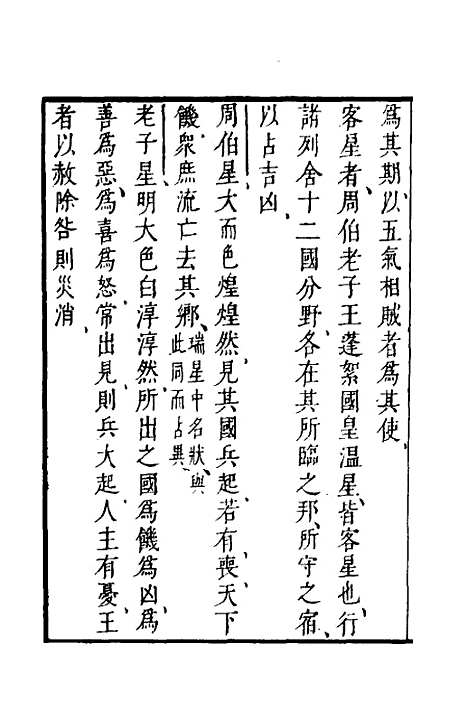 爲其期以五氣相賊者爲其使
客星者周伯老子王蓬絮國皇溫星皆客星也行
諸列舍十二國分野各在其所臨之邦所守之宿
以占吉凶
周伯星大而色煌煌然見其國兵起若有喪天下
饑衆庶流亡去其鄉瑞星中名狀與
此同而占異
老子星明大色白淳淳然所出之國爲饑爲凶爲
善爲惡爲喜爲怒常出見則兵大起人主有憂王
者以赦除咎則災消